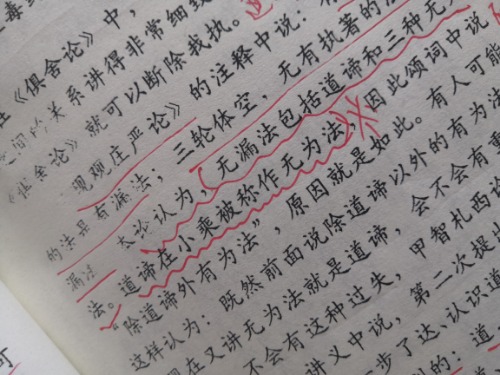 在《俱舍论》中，
关系讲得非常细致。
就可以断除我执。
现观庄严论》的注释中说：有
的法是有漏法；三轮体空，无有执著的
漏法。本论认为，无漏法包括道谛和三种无
法。道谛在小乘被称作无为法，因此颂词中说
“除道谛外有为法”，原因就是如此。有人可能
这样认为：既然前面说除道谛以外的有为法
现在又讲无为法就是道谛，会不会有
不会有这种过失，甲智札西论
讲义中说，第二次提
步了达、认识道
的：道
可